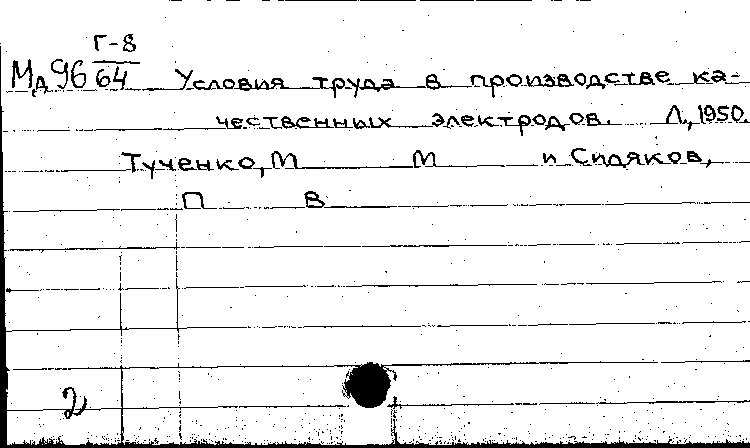 Г-8
Мд96 64 Условия труда в производстве ка-
чественных электродов. Л., 1950.
Тученко, М М и Сидяков,
П В
2